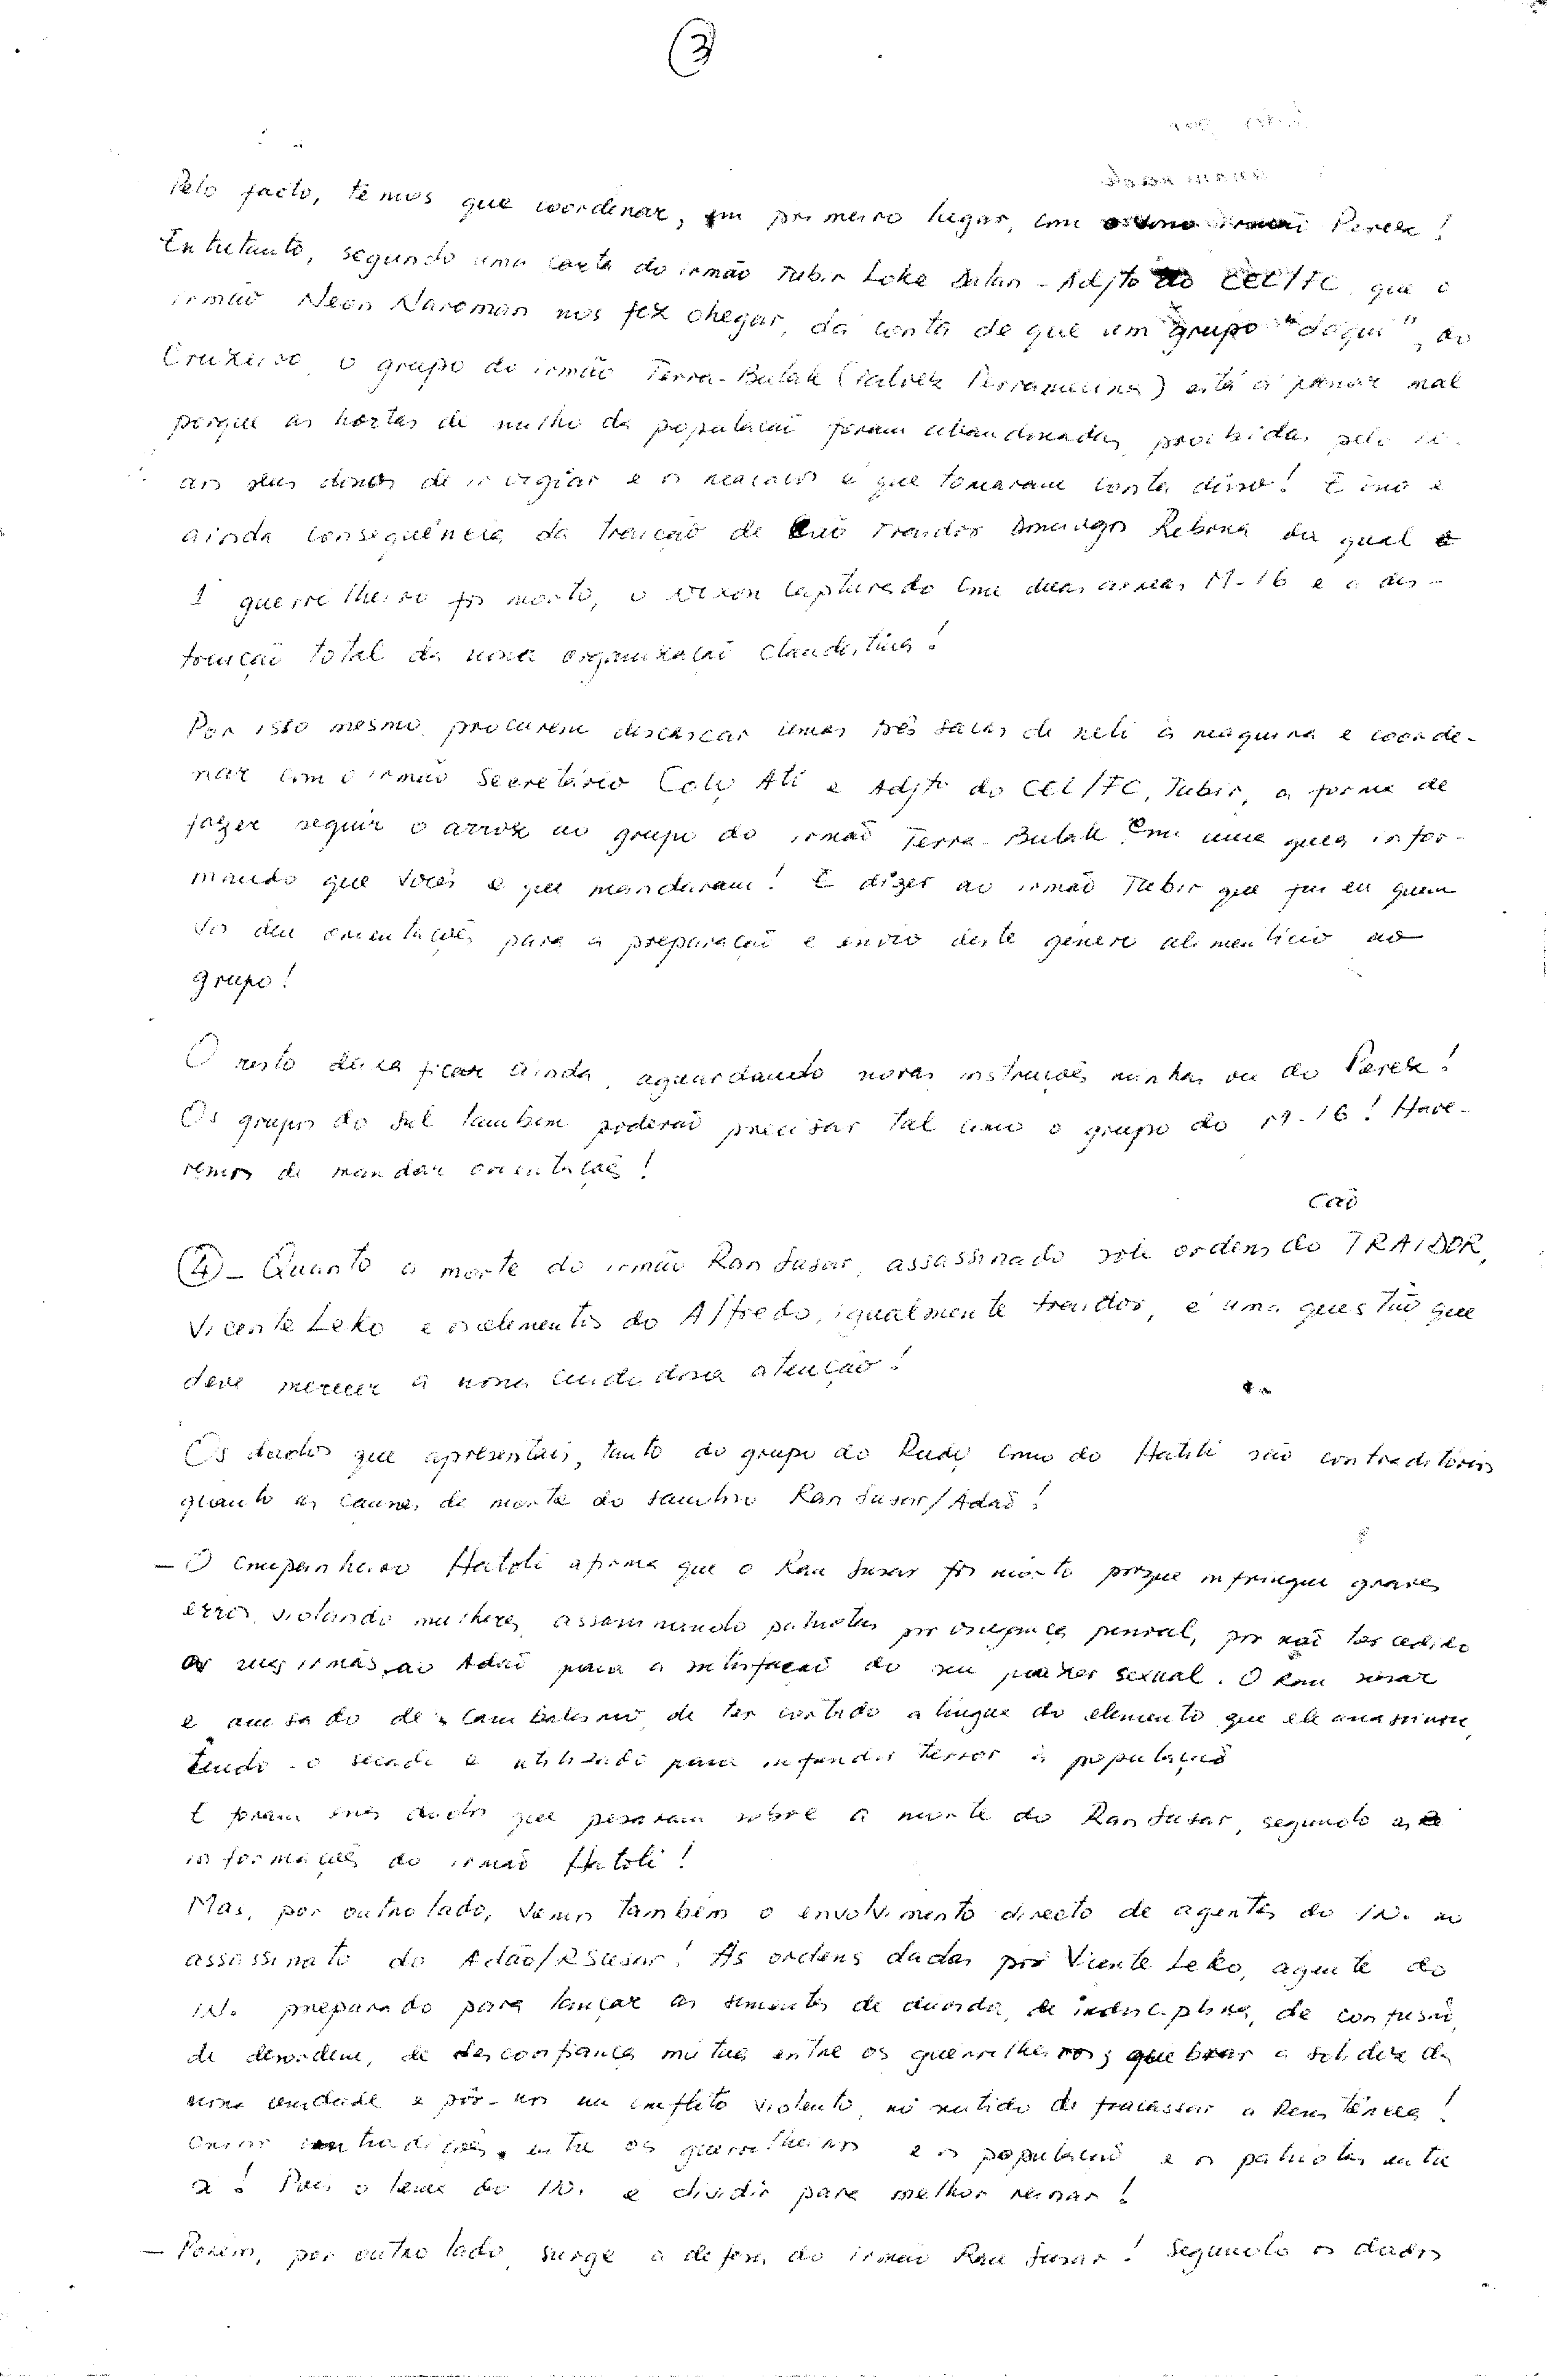 3
Pelo facto, temos que coordenar, em primeiro lugar, com o irmão Perek!
Entretanto, segundo uma carta do irmão Tubir Loke Dalan - Adjto do CEL/FC, que o
irmão Neon Naroman nos fez chegar, dá conta de que um grupo "daqui", do
Cruzeiro, o grupo do irmão Terra-Bulak (talvez Terramerina) está a passar mal
porque as hortas de milho da população foram abandonadas, proibidas pelo in.
aos seus donos de ir vigiar e os macacos é que tomaram conta disso! E isso é
ainda consequência da traição de cão traidor Domingos Rebona da qual
1 guerrilheiro foi morto, o capturado com duas armas M-16 e a des-
truição total da nossa organização clandestina!
Por isso mesmo, procurem descascar umas três sacas de neli à máquina e coorde-
nar com o irmão Secretário Coly Ati e Adjto do CEL/FC, Tubir, a forma de
fazer seguir o arroz ao grupo do irmão Terra-Bulak com uma guia infor-
mando que vocês é que mandaram! E dizer ao irmão Tubir que fui eu quem
vos deu orientações para a preparação e envio deste género alimentício ao
grupo!
O resto deixa ficar ainda, aguardando novas instruções minhas ou do Perek!
Os grupos do Sul também poderão precisar tal como o grupo do M-16! Have-
remos de mandar orientações!
cão
4 - Quanto à morte do irmão Ran Susar, assassinado sob ordens do TRAIDOR,
Vicente Leko e os elementos do Alfredo, igualmente traidor, é uma questão que
deve merecer a nossa cuidadosa atenção!
Os dados que apresentais, tanto do grupo do Rudy como do Hatoli são contraditórios
quanto às causas da morte do saudoso Ran Susar/Adão!
- O companheiro Hatoli afirma que o Ran Susar foi morto porque infringiu graves
erros, violando mulheres, assassinando patriotas por vingança pessoal, por não ter cedido
as suas irmãs ao Adão para a satisfação do seu prazer sexual. O Ran Susar
é acusado de canibalismo, de ter cortado a língua do elemento que ele assassinou,
tendo-o secado e utilizado para infundir terror à população
E foram estes dados que pesaram sobre a morte do Ran Susar, segundo as
informações do irmão Hatoli!
Mas, por outro lado, vemos também o envolvimento directo de agentes do in. no
assassinato do Adão/RSusar! As ordens dadas por Vicente Leko, agente do
in. preparado para lançar as sementes de dúvida, de indisciplina, de confusão,
de desordem, de desconfiança mútua entre os guerrilheiros; quebrar a solidez da
nossa unidade e pôr-nos em conflito violento, no sentido de fracassar a Resistência!
Criar contradições entre os guerrilheiros e a população e os patriotas entre
si! Pois o lema do in. é dividir para melhor reinar!
- Porém, por outro lado, surge a defesa do irmão Ran Susar! Segundo os dados